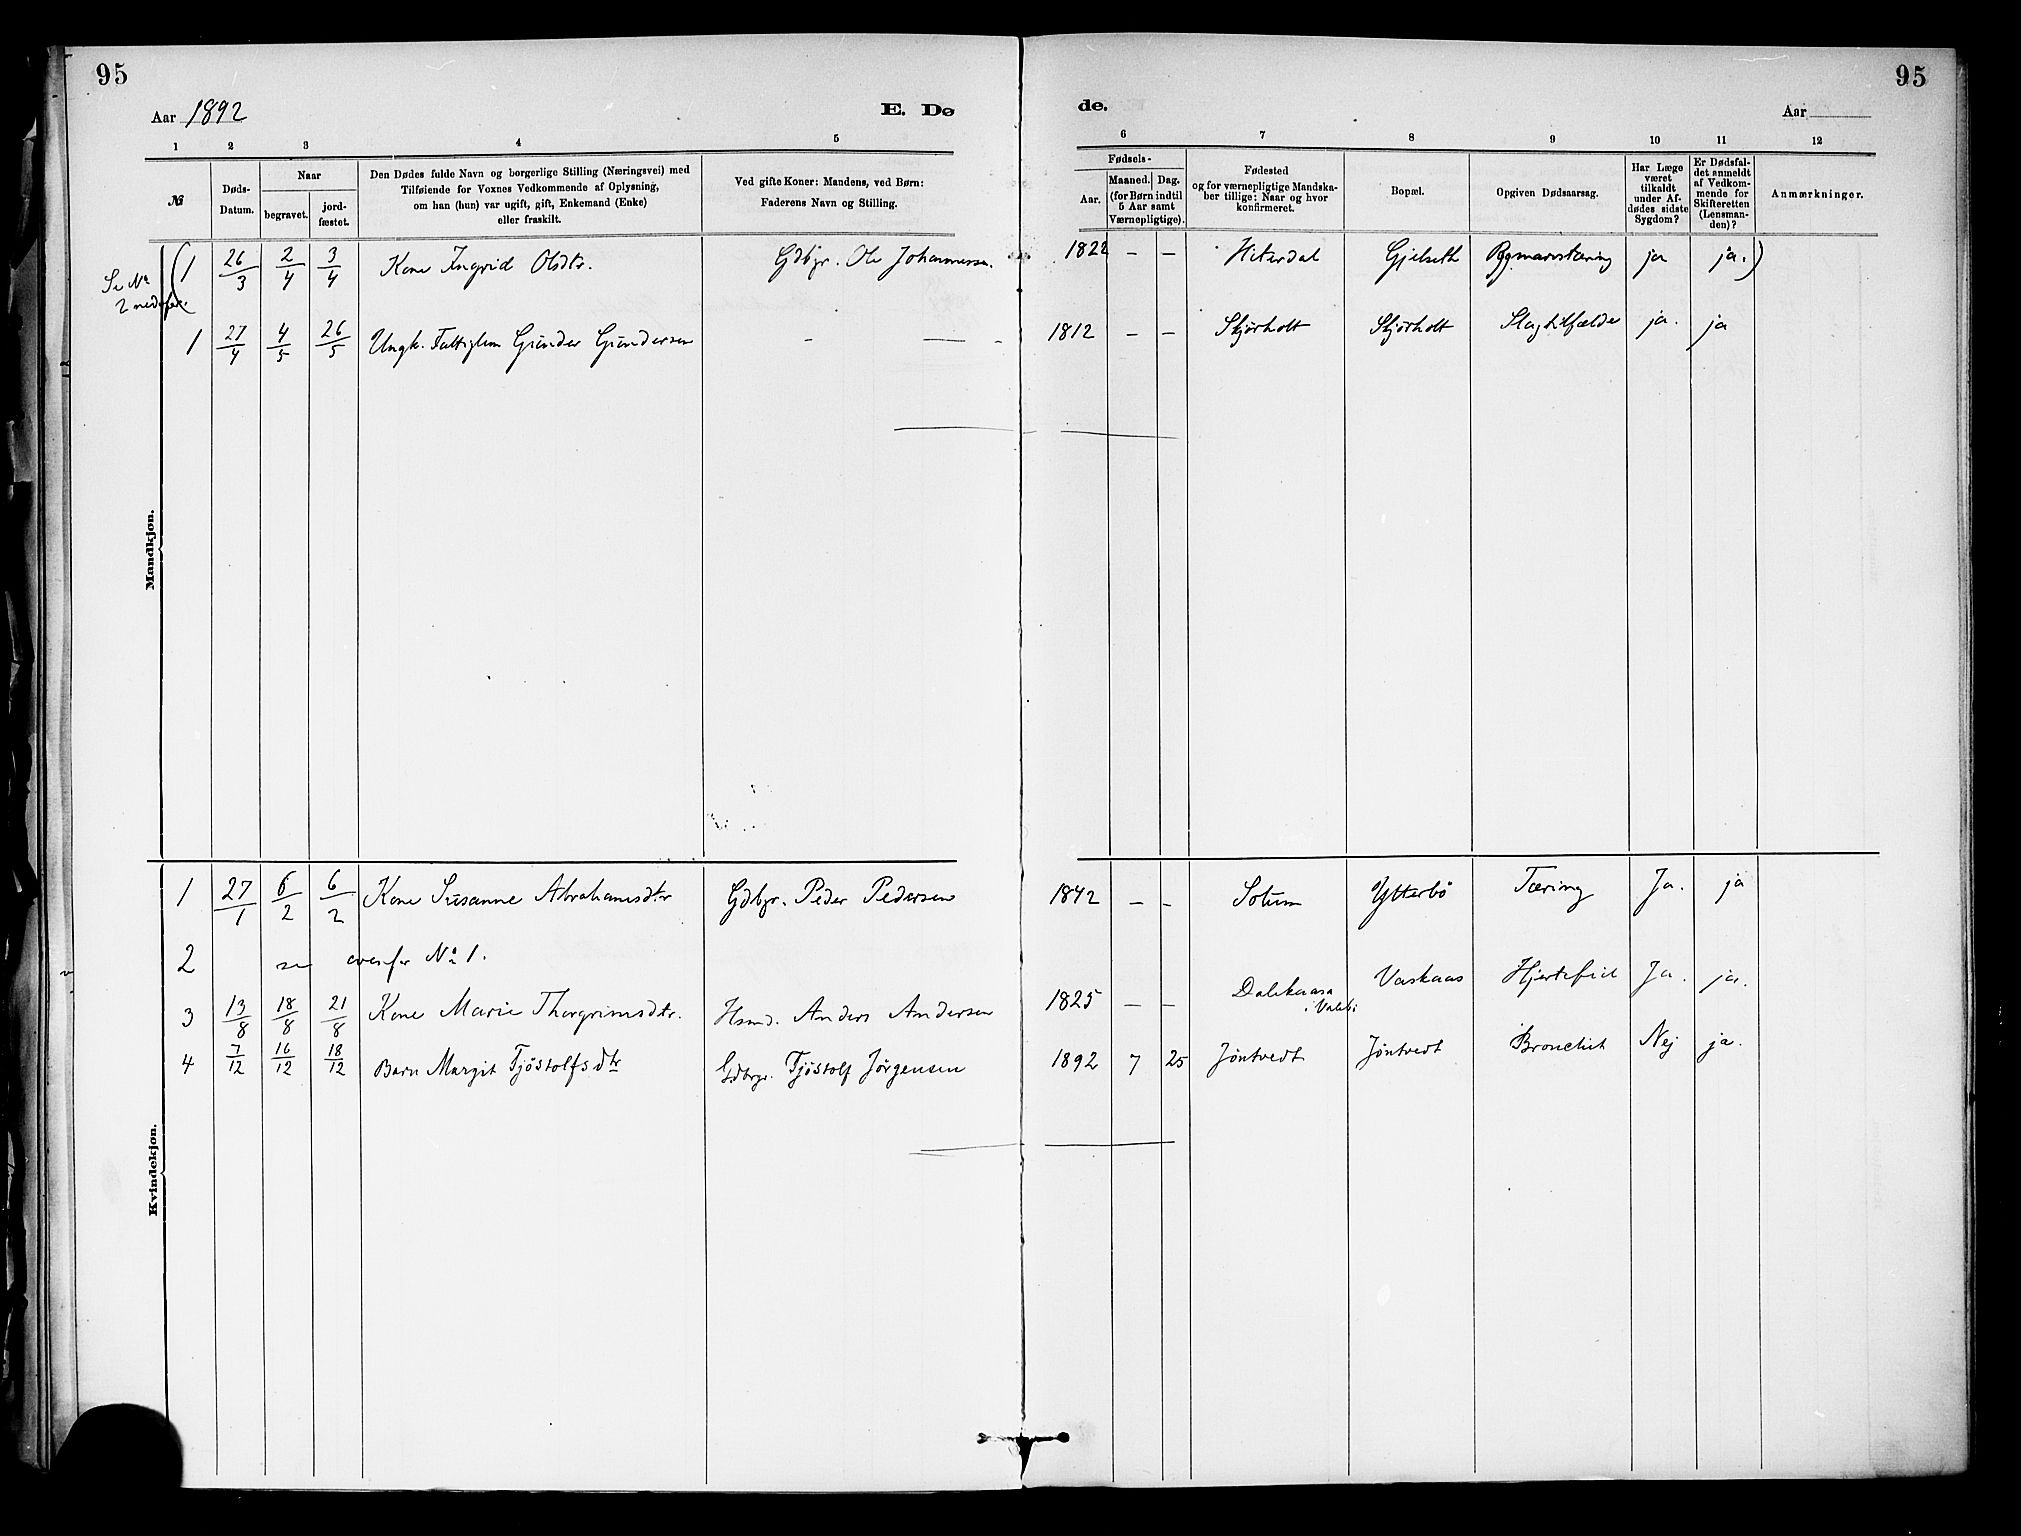 95
95
Aar 1892
E. Dø
de.
Aar
1 2 3 4 5 6 7 8 9 10 11 12
№
Døds-
Datum.
Naar
begravet.
jord-
fæstet.
Den Dødes fulde Navn og borgerlige Stilling (Næringsvei) med
Tilføiende for Voxnes Vedkommende af Oplysning,
om han (hun) var ugift, gift, Enkemand (Enke)
eller fraskilt.
Ved gifte Koner: Mandens, ved Børn:
Faderens Navn og Stilling.
Fødsels-
Aar.
Maaned. Dag.
(for Børn indtil
5 Aar samt
Værnepligtige).
Fødested
og for værnepligtige Mandska-
ber tillige: Naar og hvor
konfirmeret.
Bopæl.
Opgiven Dødsaarsag.
Har Læge
været
tilkaldt
under Af-
dødes sidste
Sygdom?
Er Dødsfal-
det anmeldt
af Vedkom-
mende for
Skifteretten
(Lensman-
den)?
Anmærkninger.
Mandkjøn.
Se No
2 nedenfor.
(1 26/3 2/4 3/4 Kone Ingrid Olsdtr. Gdbgr. Ole Johannessen. 1822 – – Hiterdal Gjelseth Rygmarvstæring ja ja.)
1 27/4 4/5 26/5 Ungk. Fattiglem Gunder Gundersen - — - 1812 – – Skjørholt Skjørholt Slagtilfælde ja. ja
Kvindekjøn.
1 27/1 6/2 6/2 Kone Susanne Abrahamsdtr Gdbgr. Peder Pedersen 1842 – – Solum Ytterbø Tæring Ja. ja
2 se ovenfor No 1.
3 13/8 18/8 21/8 Kone Marie Thorgrimsdtr. Hsmd. Anders Andersen 1825 – – Dalekaasa Vaskaas Hjertefeil Ja. ja.
4 7/12 16/12 18/12 Barn Margit Tjøstolfsdtr Gdbrgr. Tjøstolf Jørgensen 1892 7 25 Jøntvedt Jøntvedt Bronchit Nej ja.